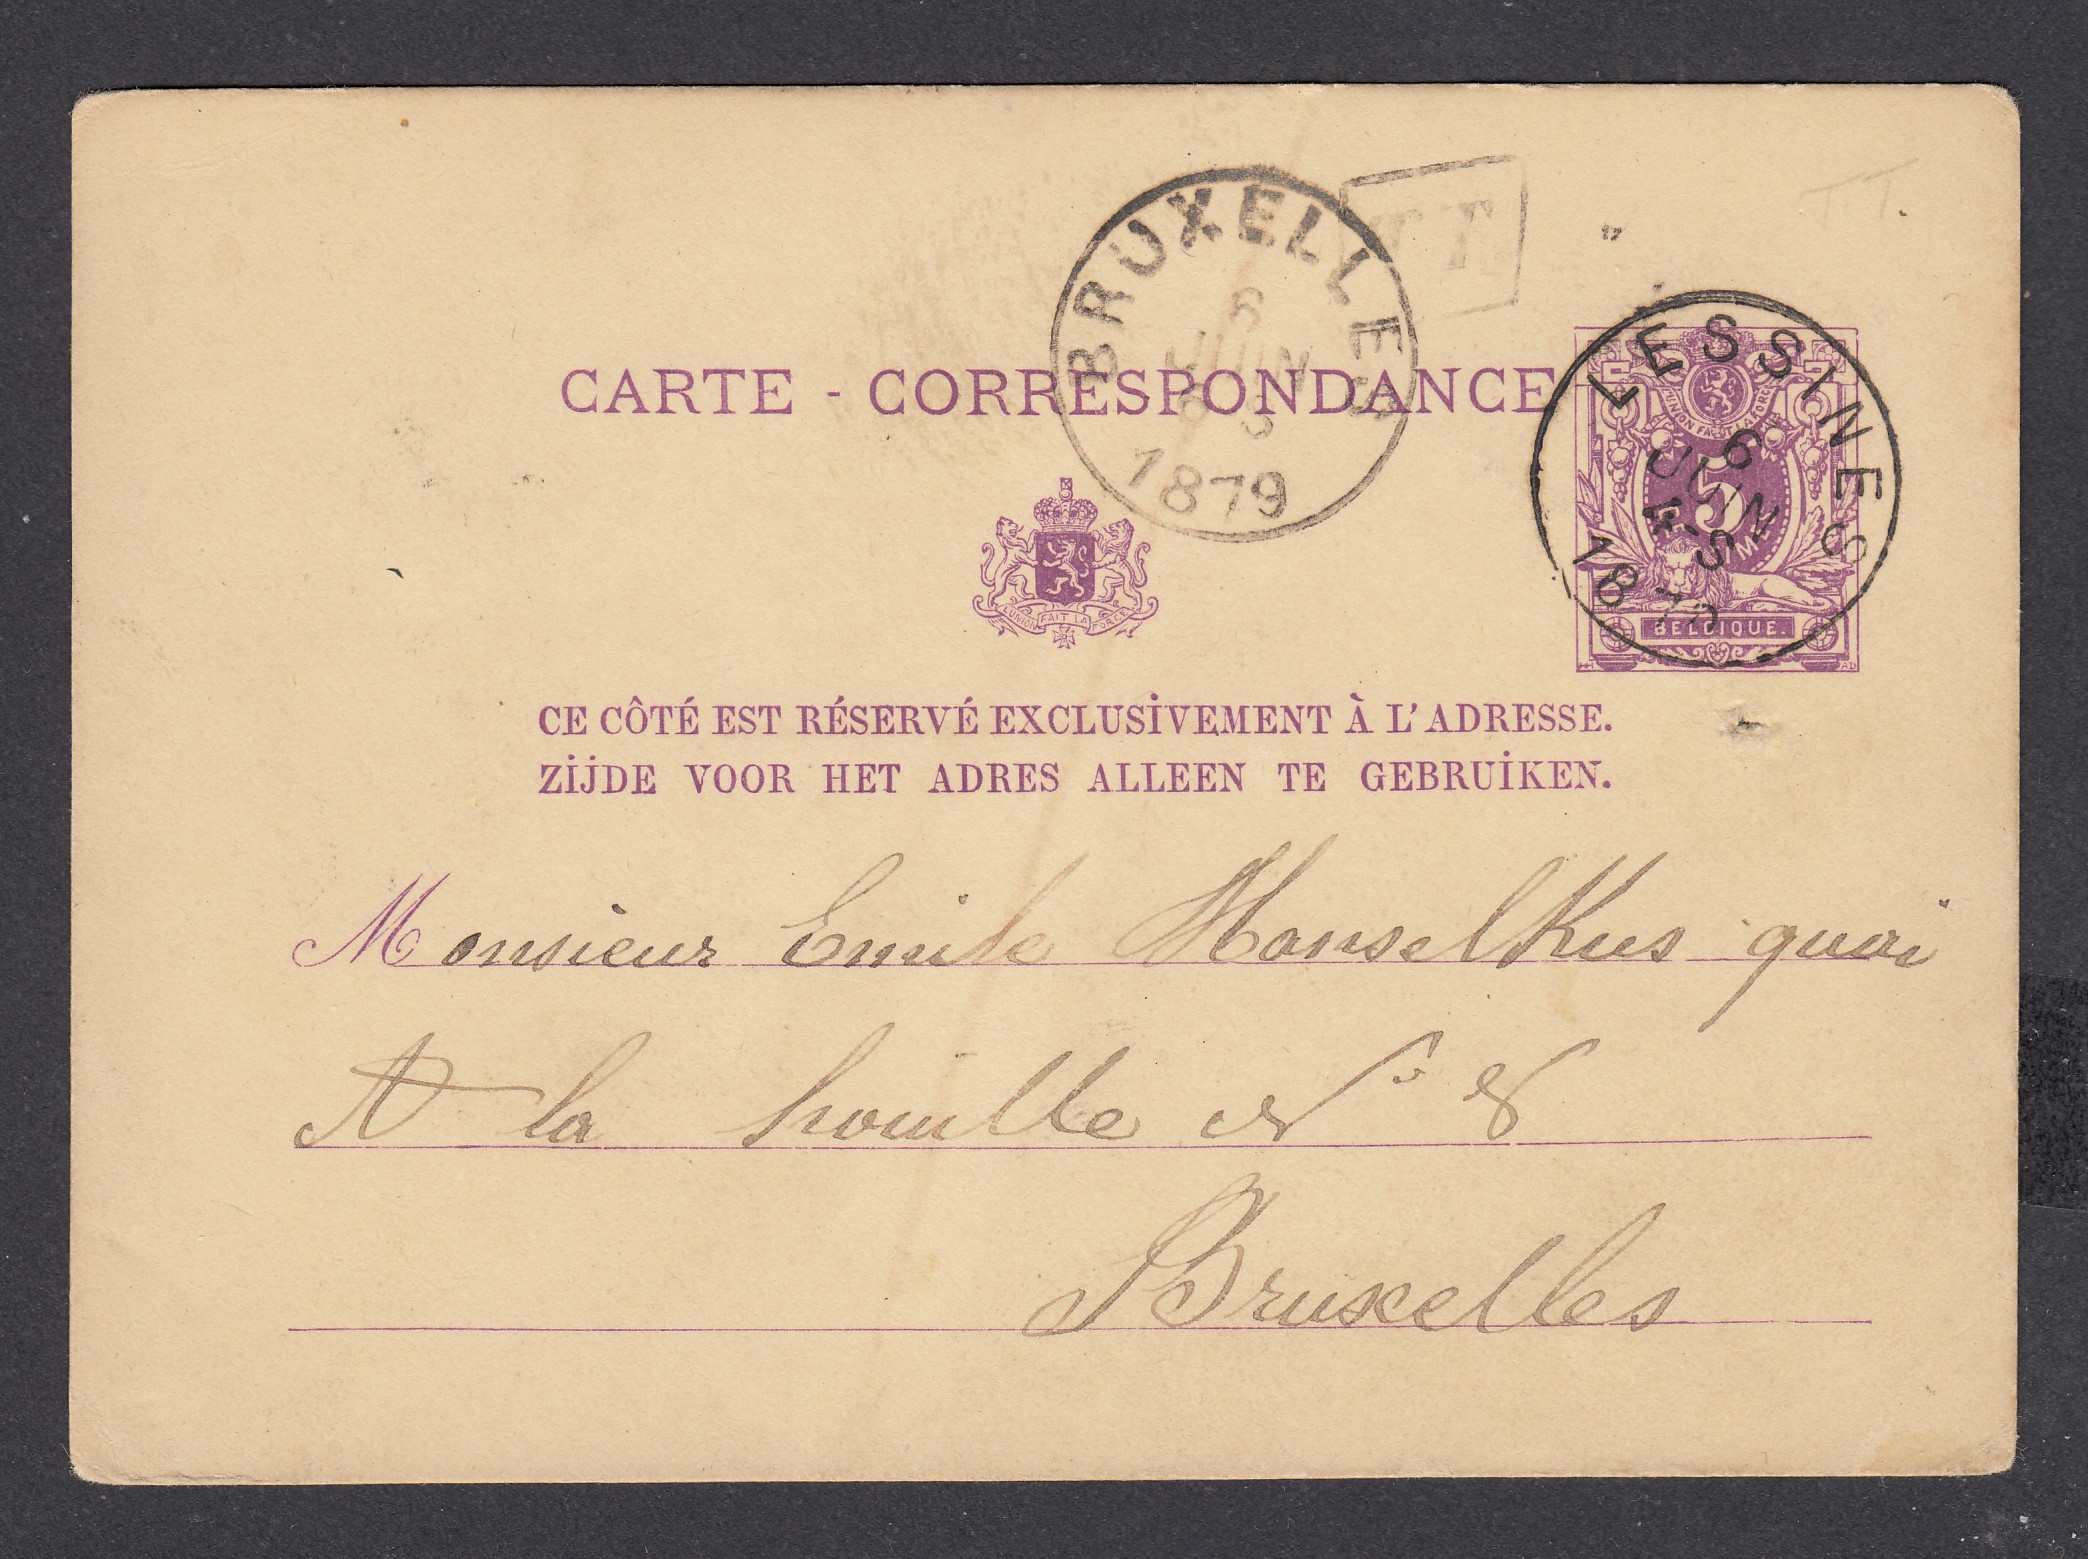 BRUXELLES
6
JUIN
8 S
1879
T T.
LESSINES
6
JUIN
4-S
1879
CARTE - CORRESPONDANCE
L'UNION FAIT LA FORCE
5
BELGIQUE.
L'UNION FAIT LA FORCE
CE CÔTÉ EST RÉSERVÉ EXCLUSIVEMENT À L'ADRESSE.
ZIJDE VOOR HET ADRES ALLEEN TE GEBRUIKEN.
Monsieur Emile Hanselkus quai
A la houille N° 8
Bruxelles